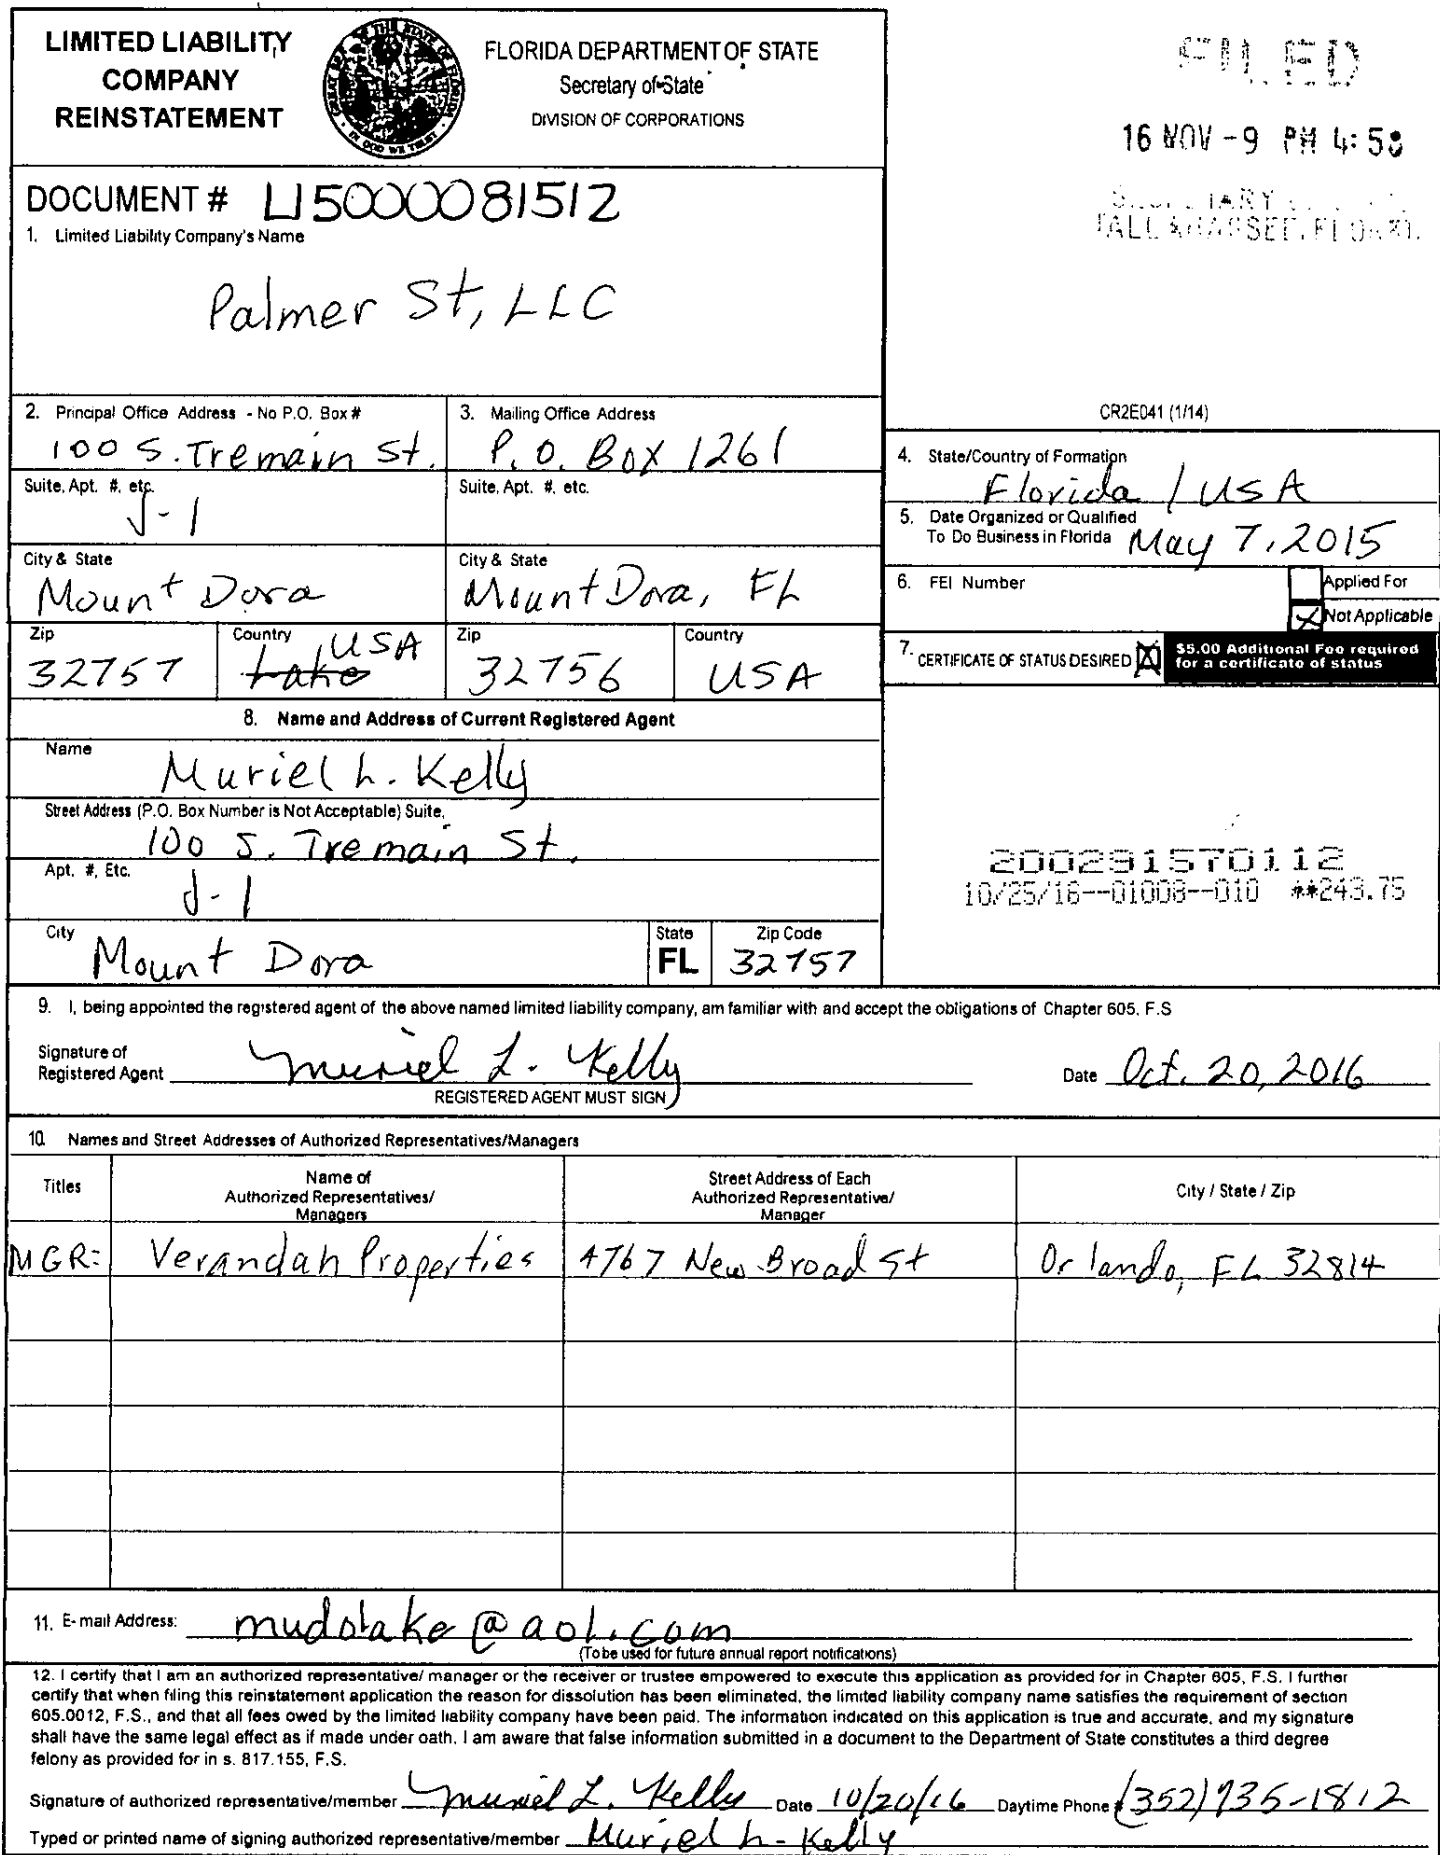 LIMITED LIABILITY
COMPANY
REINSTATEMENT
FLORIDA DEPARTMENT OF STATE
Secretary of State
DIVISION OF CORPORATIONS
FILED
16 NOV -9 PM 4:58
DOCUMENT # L15000081512
1. Limited Liability Company's Name
Palmer St, LLC
CR2E041 (1/14)
2. Principal Office Address - No P.O. Box #
100 S. Tremain St.
Suite, Apt. #, etc.
J-1
City & State
Mount Dora
Zip
32757
Country
Lake, USA
3. Mailing Office Address
P.O. Box 1261
Suite, Apt. #, etc.
City & State
Mount Dora, FL
Zip
32756
Country
USA
4. State/Country of Formation
Florida / USA
5. Date Organized or Qualified
To Do Business in Florida May 7, 2015
6. FEI Number
Applied For
X Not Applicable
7. CERTIFICATE OF STATUS DESIRED X
$5.00 Additional Fee required
for a certificate of status
8. Name and Address of Current Registered Agent
Name
Muriel L. Kelly
Street Address (P.O. Box Number is Not Acceptable) Suite,
100 S. Tremain St.
Apt. #, Etc.
J-1
City
Mount Dora
State
FL
Zip Code
32757
200291570112
10/25/16--01008--010 **243.75
9. I, being appointed the registered agent of the above named limited liability company, am familiar with and accept the obligations of Chapter 605, F.S
Signature of
Registered Agent Muriel L. Kelly
REGISTERED AGENT MUST SIGN
Date Oct. 20, 2016
10. Names and Street Addresses of Authorized Representatives/Managers
Titles
Name of
Authorized Representatives/
Managers
Street Address of Each
Authorized Representative/
Manager
City / State / Zip
MGR: Verandah Properties 4767 New Broad St Orlando, FL 32814
11. E-mail Address: mudolake@aol.com
(To be used for future annual report notifications)
12. I certify that I am an authorized representative/ manager or the receiver or trustee empowered to execute this application as provided for in Chapter 605, F.S. I further
certify that when filing this reinstatement application the reason for dissolution has been eliminated, the limited liability company name satisfies the requirement of section
605.0012, F.S., and that all fees owed by the limited liability company have been paid. The information indicated on this application is true and accurate, and my signature
shall have the same legal effect as if made under oath. I am aware that false information submitted in a document to the Department of State constitutes a third degree
felony as provided for in s. 817.155, F.S.
Signature of authorized representative/member Muriel L. Kelly Date 10/20/16 Daytime Phone # (352)735-1812
Typed or printed name of signing authorized representative/member Muriel L. Kelly